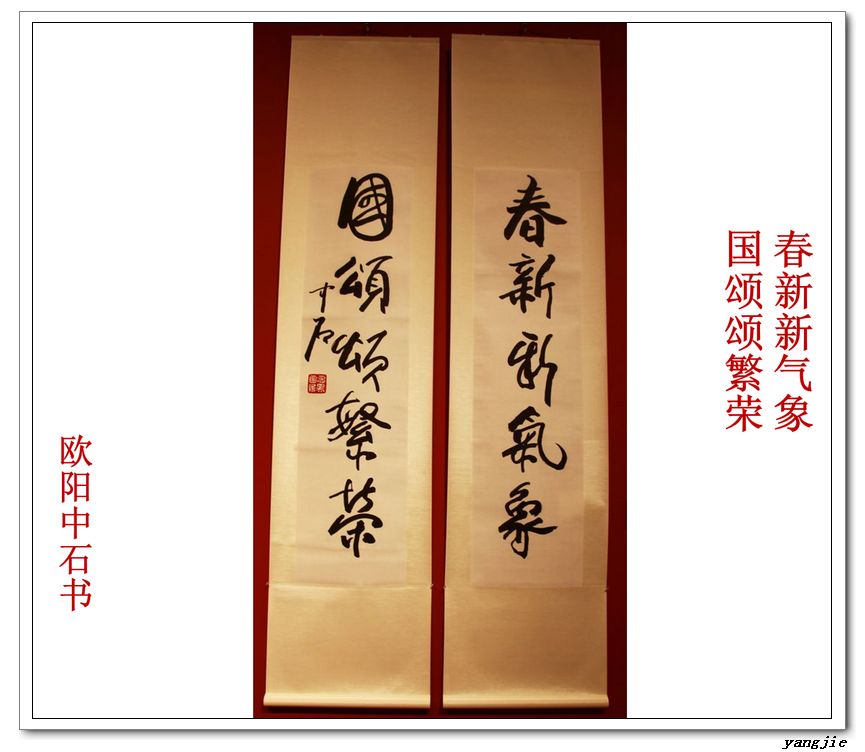 春新新气象
国颂颂繁荣
春新新氣象
國頌頌繁榮
中石
欧阳中石书
yangjie